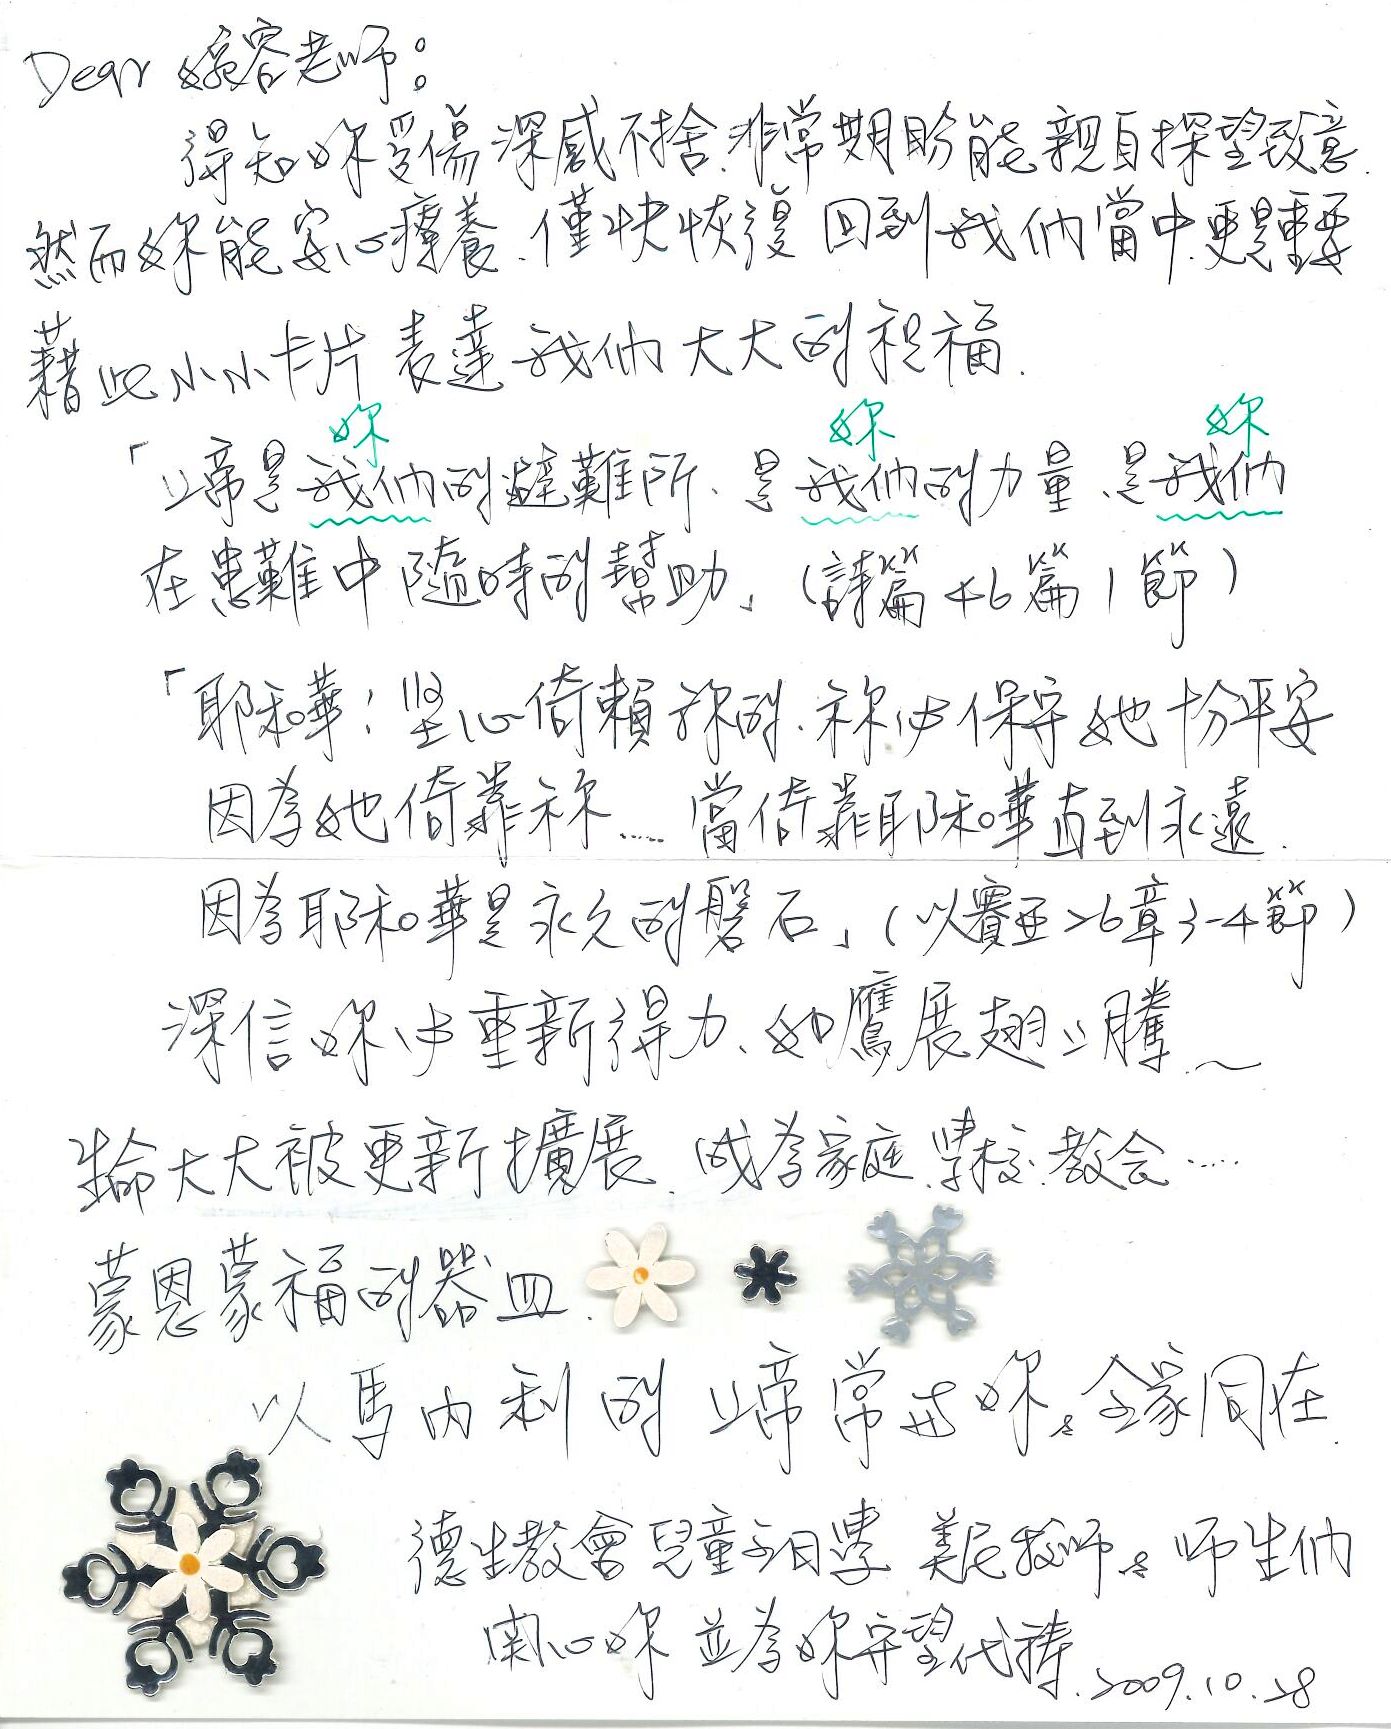 Dear 嬑容老師：
得知妳受傷深感不捨.非常期盼能親自探望致意.
然而妳能安心療養、僅快恢復回到我們當中.更是重要
藉此小小卡片表達我們大大的祝福.
妳 妳 妳
「上帝是我們的避難所、是我們的力量、是我們
在患難中隨時的幫助」(詩篇46篇1節)
「耶和華!堅心倚賴祢的.祢必保守她十分平安
因為她倚靠祢……當倚靠耶和華直到永遠.
因為耶和華是永久的磐石」(以賽亞26章3-4節)
深信妳必重新得力、如鷹展翅上騰.~
生命大大被更新擴展.成為家庭.學校.教会……
蒙恩蒙福的器皿.
以馬內利的上帝常与妳&全家同在.
德生教會兒童主日學 美尼牧師&師生們
関心妳並為妳守望代禱.2009.10.28